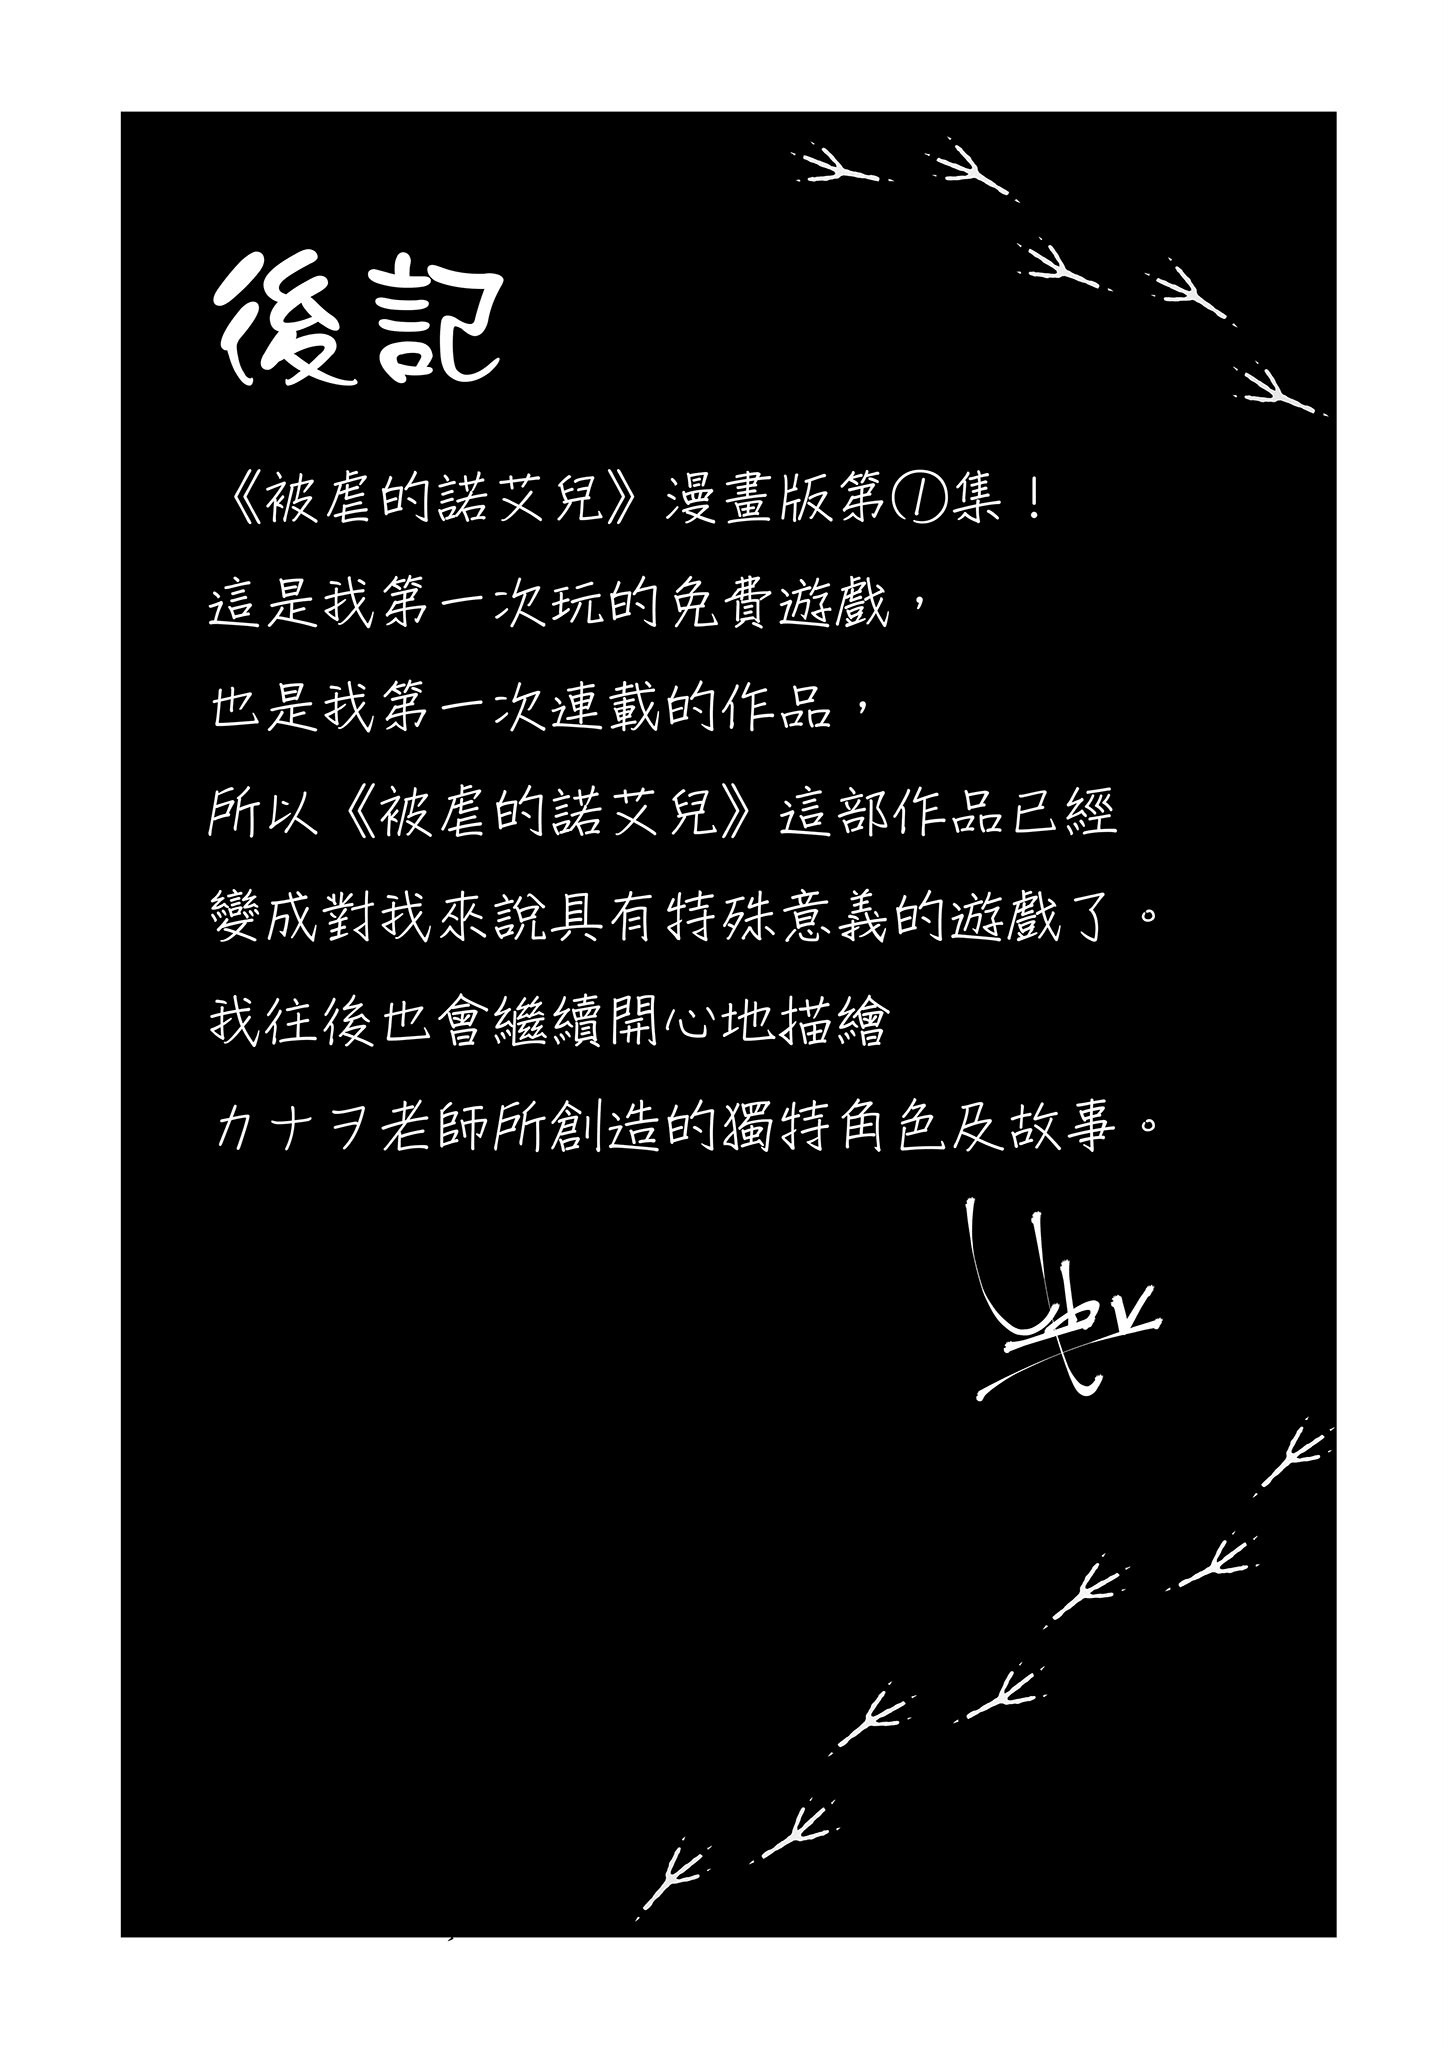 後記
《被虐的諾艾兒》漫畫版第①集！
這是我第一次玩的免費遊戲，
也是我第一次連載的作品，
所以《被虐的諾艾兒》這部作品已經
變成對我來說具有特殊意義的遊戲了。
我往後也會繼續開心地描繪
カナヲ老師所創造的獨特角色及故事。